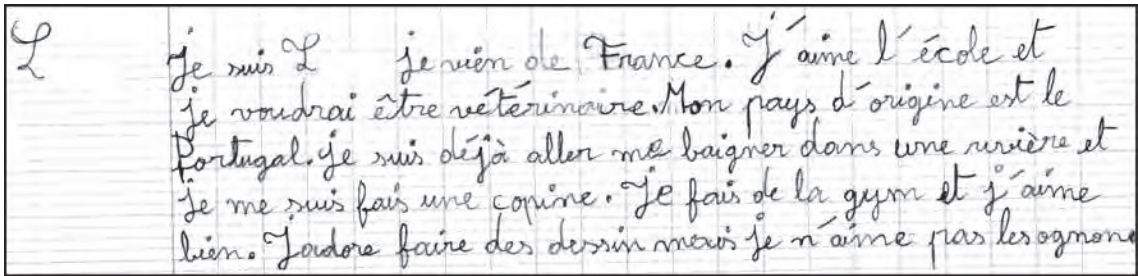 L Je suis L je vien de France. J'aime l'école et
je voudrai être vétérinaire. Mon pays d'origine est le
Portugal. Je suis déjà aller me baigner dans une rivière et
je me suis fais une copine. Je fais de la gym et j'aime
bien. J'adore faire des dessin mais je n'aime pas les ognons